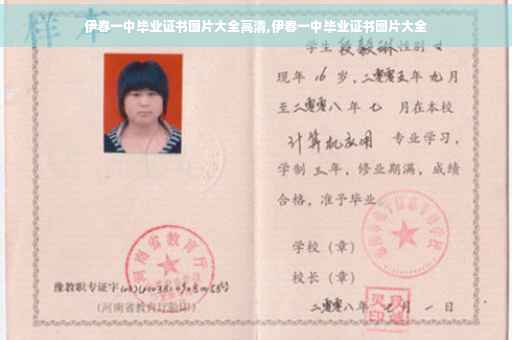 伊春一中毕业证书图片大全高清,伊春一中毕业证书图片大全
样本
学生 段毅琳 性别 女
现年 16 岁,二零零五年 九 月
至二零零八年 七 月在本校
计算机应用 专业学习,
学制 三 年,修业期满,成绩
合格,准予毕业
学校(章)
校长(章)
二零零八年 七 月 一 日
河南省教育厅
豫教职专证字
(河南省教育厅验印)